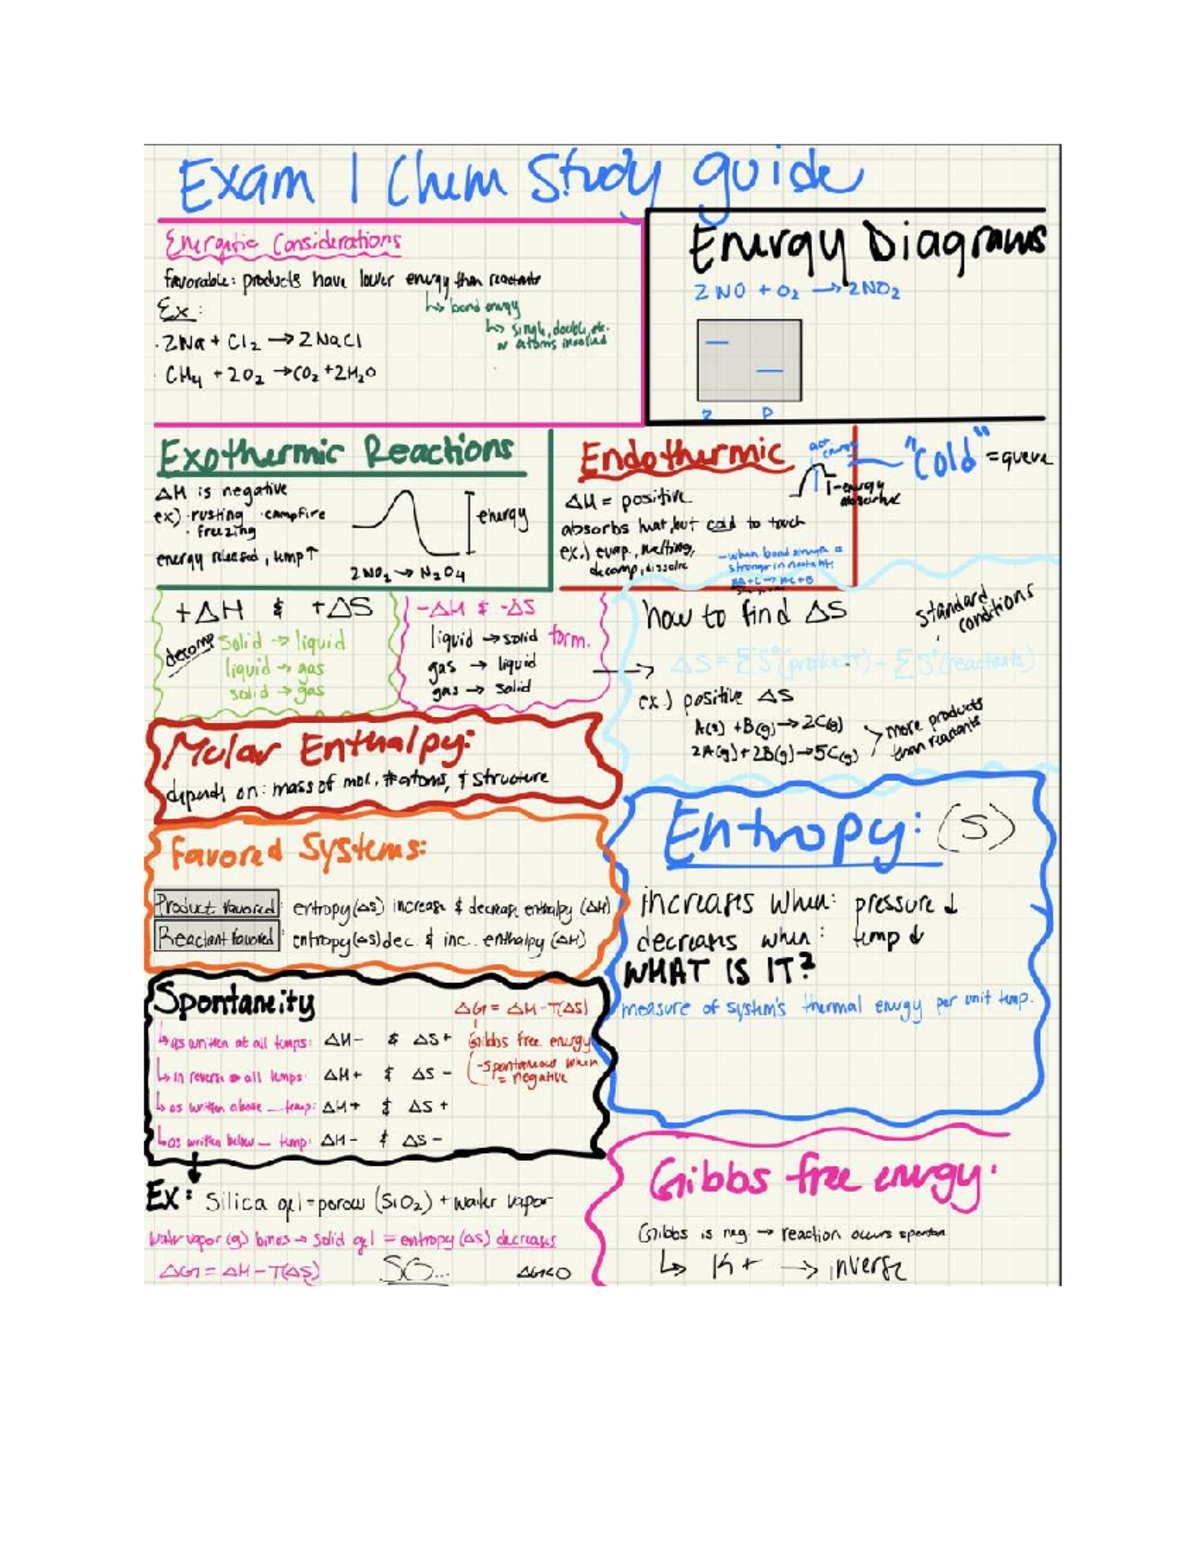 Exam 1 Chem Study guide
Energetic Considerations
favorable: products have lower energy than reactants
↳ bond energy
↳ single, double, etc.
atoms involved
Ex:
· 2Na + Cl2 → 2NaCl
· CH4 + 2O2 → CO2 + 2H2O
Energy Diagrams
2NO + O2 → 2NO2
R P
Exothermic Reactions
ΔH is negative
ex) · rusting · campfire
· freezing
energy released, temp ↑
energy
2NO2 → N2O4
Endothermic
ΔH = positive
absorbs heat, but cold to touch
ex.) evap., melting,
decomp., dissolve
act. energy
energy absorbed
"Cold" =
- when bond strength is
+ΔH & +ΔS
decomp
solid → liquid
liquid → gas
solid → gas
-ΔH & -ΔS
liquid → solid form.
gas → liquid
gas → solid
how to find ΔS
standard conditions
ΔS = ΣS°(products) - ΣS°(reactants)
ex.) positive ΔS
A(g) + B(g) → 2C(g)
2A(g) + 2B(g) → 5C(g)
more products
than reactants
Molar Enthalpy:
depends on: mass of mol., # atoms, & structure
Favored Systems:
Product favored: entropy (ΔS) increase & decrease enthalpy (ΔH)
Reactant favored: entropy (ΔS) dec. & inc. enthalpy (ΔH)
Entropy: (S)
increases when: pressure ↓
decreases when: temp ↓
WHAT IS IT?
measure of system's thermal energy per unit temp.
Spontaneity
ΔG = ΔH - T(ΔS)
↳ as written at all temps: ΔH- & ΔS+
Gibbs free energy
- spontaneous when
= negative
↳ in reverse all temps: ΔH+ & ΔS-
↳ as written above _ temp: ΔH+ & ΔS+
↳ as written below _ temp: ΔH- & ΔS-
Ex: Silica gel = porous (SiO2) + water vapor
water vapor (g) binds → solid gel = entropy (ΔS) decreases
ΔG = ΔH - T(ΔS) SO... ΔG<0
Gibbs free energy:
Gibbs is neg. → reaction occurs spontan
↳ K+ → inverse